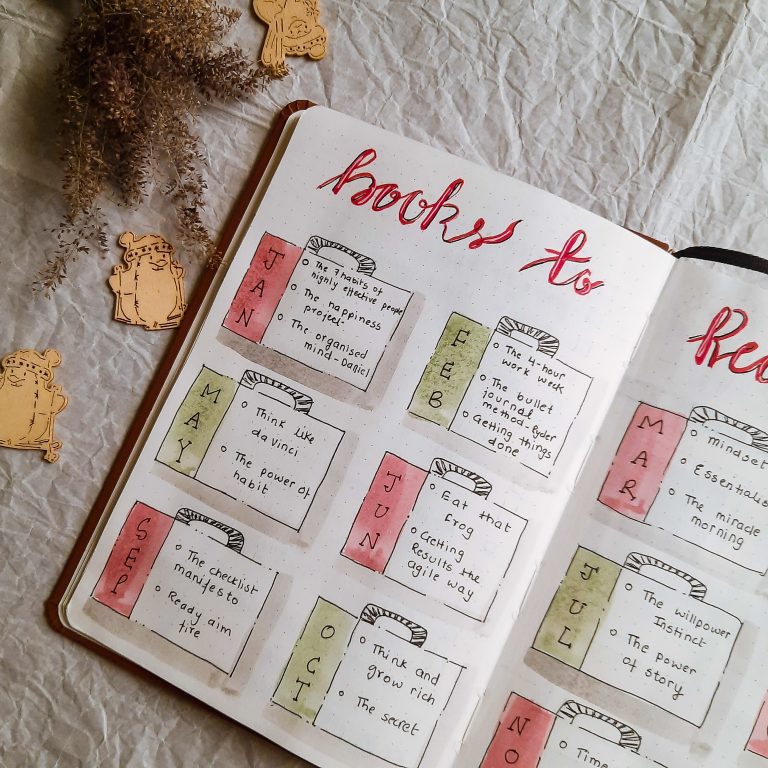 books to
JAN
The 7 habits of
highly effective people
The happiness
project-
The organised
mind-Daniel
FEB
The 4-hour
work week
The bullet
journal
method-Ryder
Getting things
done
MAY
Think like
da vinci
The power of
habit
JUN
Eat that
frog
Getting
Results the
agile way
SEP
The checklist
manifesto
Ready aim
fire
OCT
Think and
grow rich
The secret
Rea
MAR
mindset
Essentialis
The miracle
morning
JUL
The willpower
Instinct
The power
of story
NO
Time